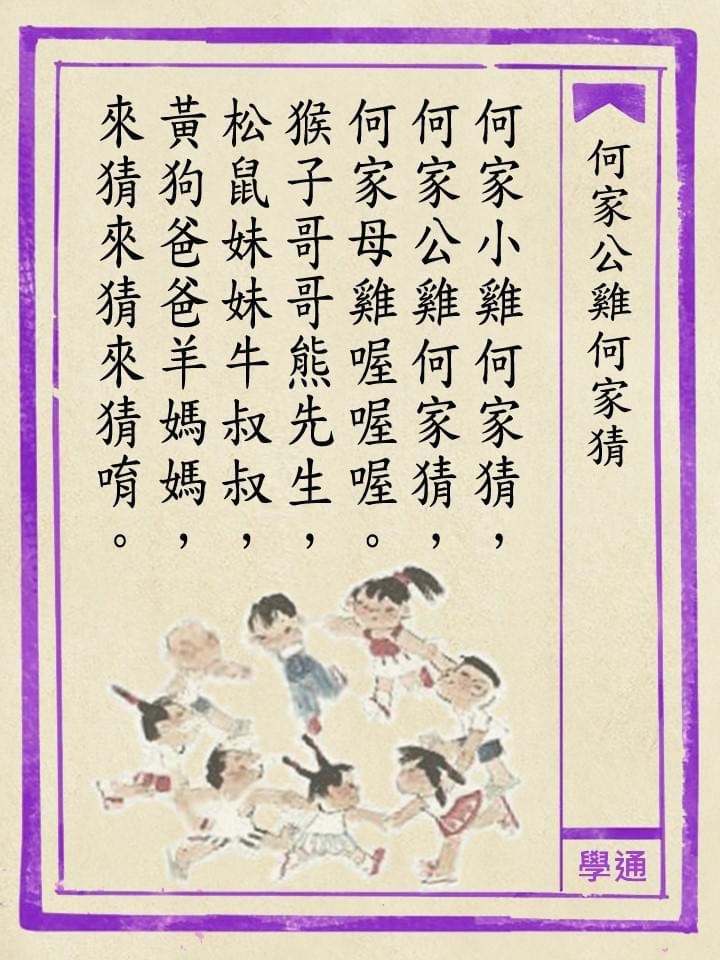 何家公雞何家猜
何家小雞何家猜，
何家公雞何家猜，
何家母雞喔喔喔。
猴子哥哥熊先生，
松鼠妹妹牛叔叔，
黃狗爸爸羊媽媽，
來猜來猜來猜唷。
學通